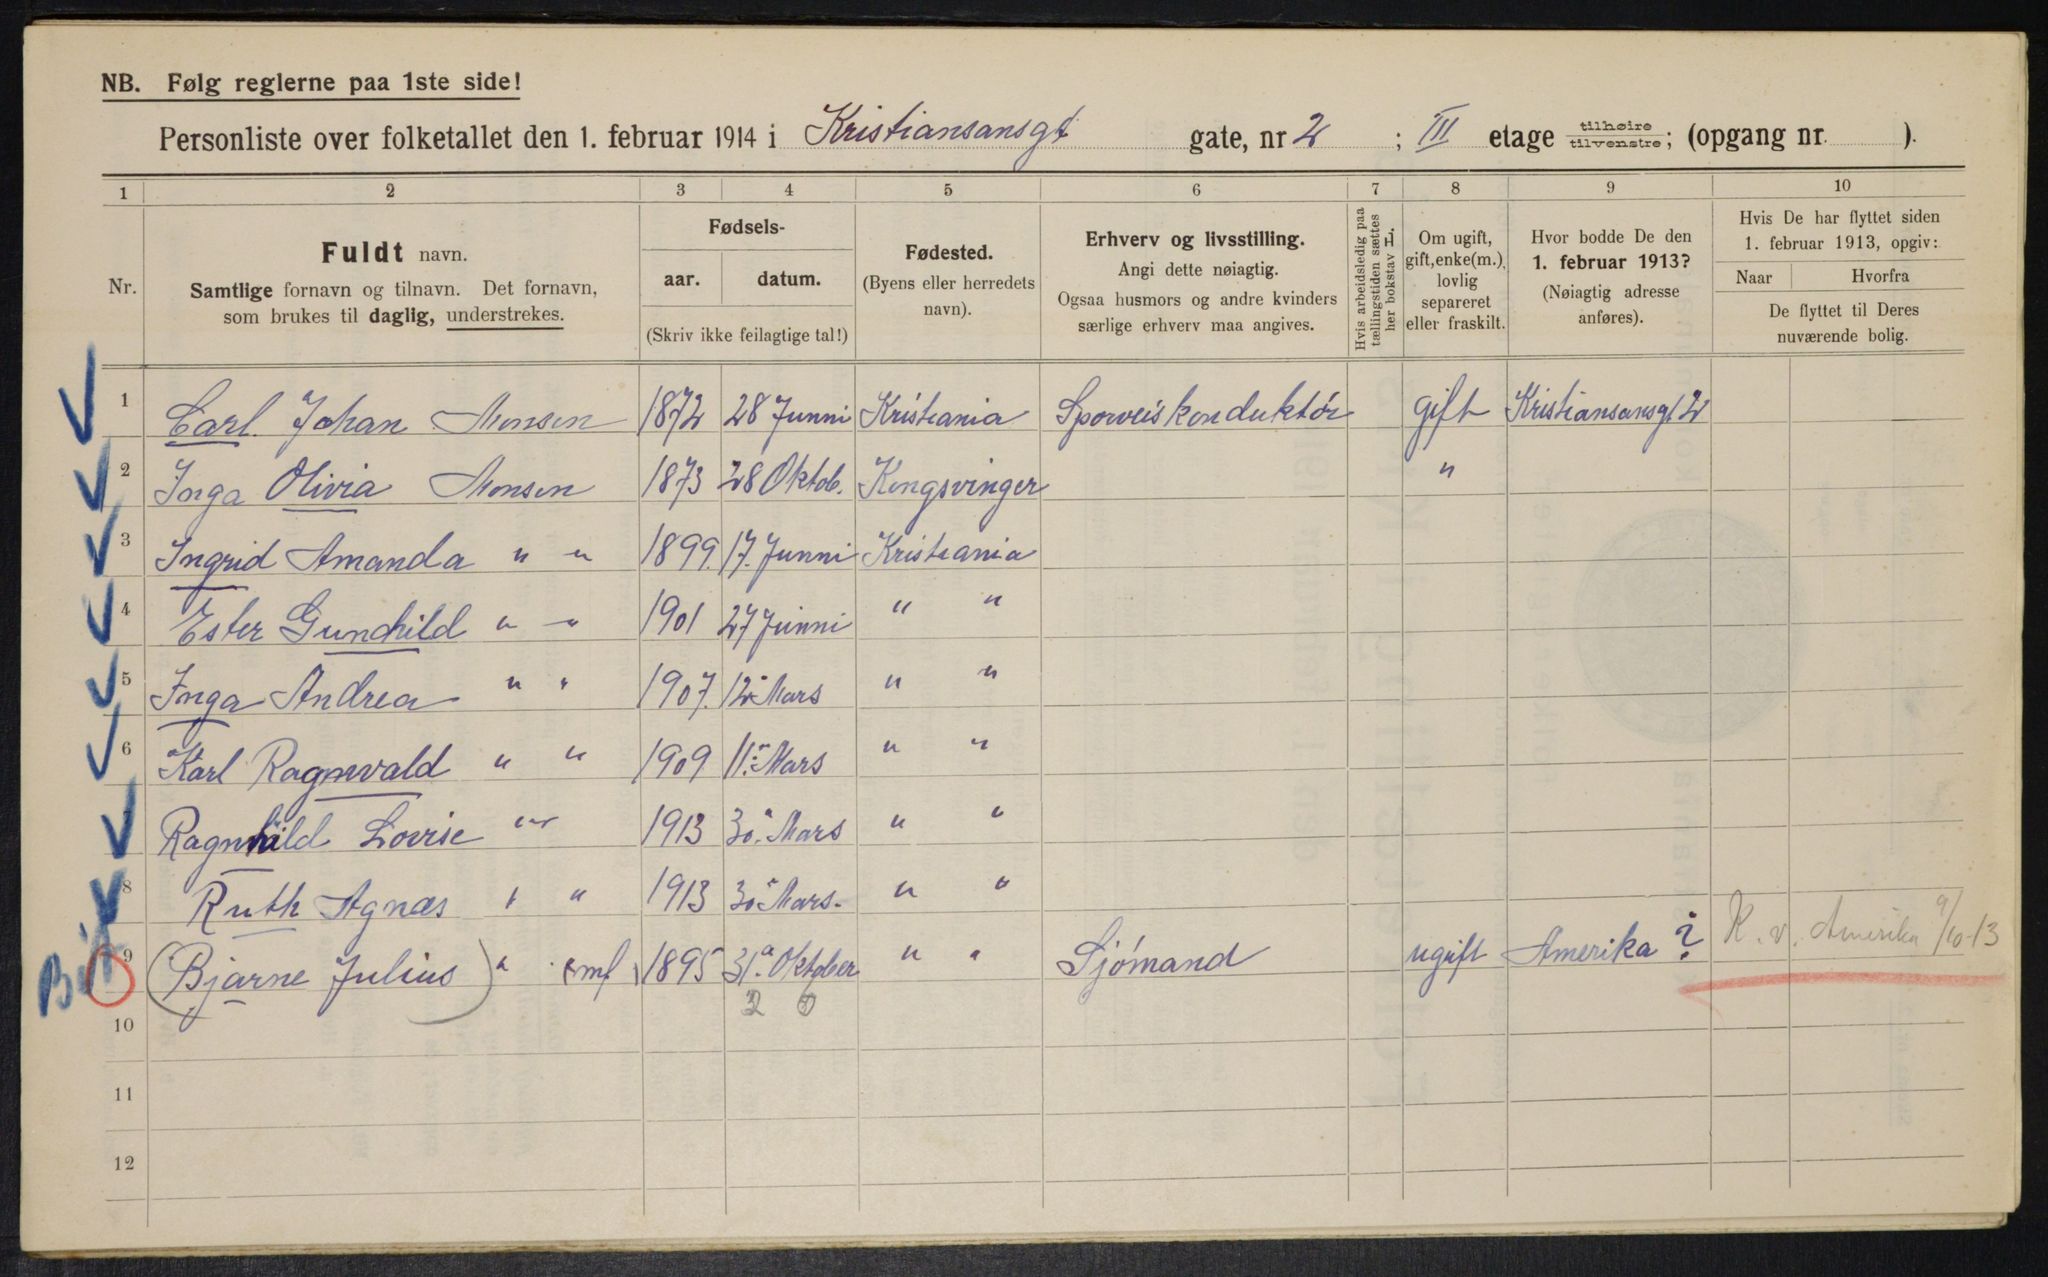 NB. Følg reglerne paa 1ste side!
Personliste over folketallet den 1. februar 1914 i Kristiansansgt gate, nr 2 ; III etage tilhøire tilvenstre; (opgang nr. ).
1 2 3 4 5 6 7 8 9 10
Nr.
Fuldt navn.
Samtlige fornavn og tilnavn. Det fornavn,
som brukes til daglig, understrekes.
Fødsels-
aar. datum.
(Skriv ikke feilagtige tal!)
Fødested.
(Byens eller herredets
navn).
Erhverv og livsstilling.
Angi dette nøiagtig.
Ogsaa husmors og andre kvinders
særlige erhverv maa angives.
Hvis arbeidsledig paa
tællingstiden sættes
her bokstav L.
Om ugift,
gift, enke(m.),
lovlig
separeret
eller fraskilt.
Hvor bodde De den
1. februar 1913?
(Nøiagtig adresse
anføres).
Hvis De har flyttet siden
1. februar 1913, opgiv:
Naar Hvorfra
De flyttet til Deres
nuværende bolig.
1 Carl Johan Monsen 1872 28 Junni Kristiania Sporveiskonduktör gift Kristiansansgt 2
2 Inga Olivia Monsen 1873 28 Oktob. Kongsvinger "
3 Ingrid Amanda " " 1899. 17. Junni Kristiania
4 Ester Gunchild " " 1901 27 Junni " "
5 Inga Andrea " " 1907. 12 Mars " "
6 Karl Ragnvald " " 1909 11. Mars " "
7 Ragnhild Lovise " " 1913 30. Mars " "
8 Ruth Agnæs " " 1913 30 Mars. " "
9 (Bjarne Julius) " " mf 1895 31. Oktober " " Sjömand ugift Amerika ? K. v. Amerika 9/10-13
2 0
10
11
12